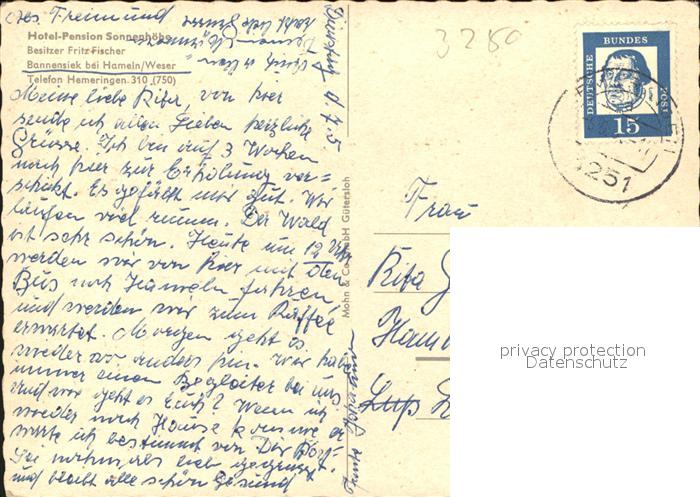 Hotel-Pension Sonnenhöhe
Besitzer Fritz Fischer
Bannensiek bei Hameln/Weser
Telefon Hemeringen 310 (750)
Meine liebe Rita, von hier
sende ich allen Lieben herzliche
Grüsse. Ich bin auf 3 Wochen
nach hier zur Erholung ver=
schickt. Es gefällt mir gut. Wir
laufen viel rum. Der Wald
ist sehr schön. Heute um 12 Uhr
werden wir von hier mit den
Bus nach Hameln fahren
und werden wir zum Kaffee
erwartet. Morgen geht es
wieder wo anders hin. Wir haben
immer einen Begleiter bei uns
und wie geht es Euch? Wenn ich
wieder nach Hause komme
ich bestimmt von Dir Post.
Sei nochmals lieb gegrüsst
und bleibt alle schön gesund
Dienstag d. 4. 5
Mohn & Co GmbH Gütersloh
3280
DEUTSCHE BUNDES POST
15
3251
Frau
Rita
privacy protection
Datenschutz